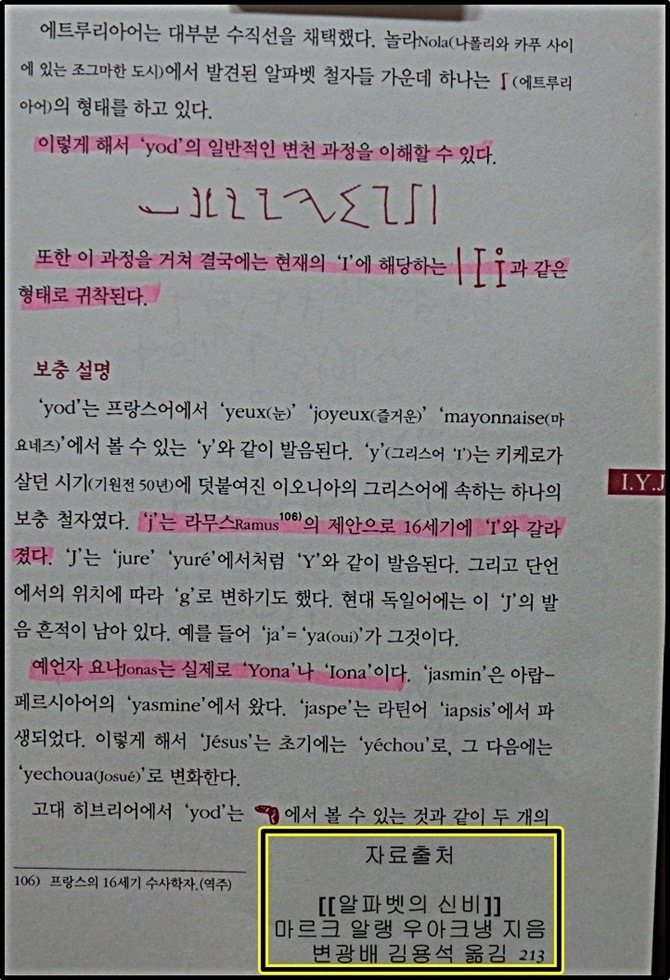 에트루리아어는 대부분 수직선을 채택했다. 놀라Nola(나폴리와 카푸 사이
에 있는 조그마한 도시)에서 발견된 알파벳 철자들 가운데 하나는 (에트루리
아어)의 형태를 하고 있다.
이렇게 해서 ‘yod’의 일반적인 변천 과정을 이해할 수 있다.
또한 이 과정을 거쳐 결국에는 현재의 ‘I’에 해당하는 과 같은
형태로 귀착된다.
보충 설명
‘yod’는 프랑스어에서 ‘yeux(눈)’ ‘joyeux(즐거운)’ ‘mayonnaise(마
요네즈)’에서 볼 수 있는 ‘y’와 같이 발음된다. ‘y’(그리스어 ‘I’)는 키케로가
살던 시기(기원전 50년)에 덧붙여진 이오니아의 그리스어에 속하는 하나의
보충 철자였다. ‘j’는 라무스Ramus106)의 제안으로 16세기에 ‘I’와 갈라
졌다. ‘J’는 ‘jure’ ‘yuré’에서처럼 ‘Y’와 같이 발음된다. 그리고 단언
에서의 위치에 따라 ‘g’로 변하기도 했다. 현대 독일어에는 이 ‘J’의 발
음 흔적이 남아 있다. 예를 들어 ‘ja’=‘ya(oui)’가 그것이다.
예언자 요나Jonas는 실제로 ‘Yona’나 ‘Iona’이다. ‘jasmin’은 아랍-
페르시아어의 ‘yasmine’에서 왔다. ‘jaspe’는 라틴어 ‘iapsis’에서 파
생되었다. 이렇게 해서 ‘Jésus’는 초기에는 ‘yéchou’로, 그 다음에는
‘yechoua(Josué)’로 변화한다.
고대 히브리어에서 ‘yod’는 에서 볼 수 있는 것과 같이 두 개의
I.Y.J
106) 프랑스의 16세기 수사학자.(역주)
자료출처
[[알파벳의 신비]]
마르크 알랭 우아크냉 지음
변광배 김용석 옮김 213